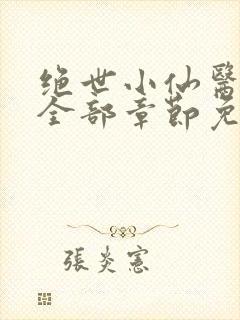 绝世小仙醫
全部章節免
張炎憲